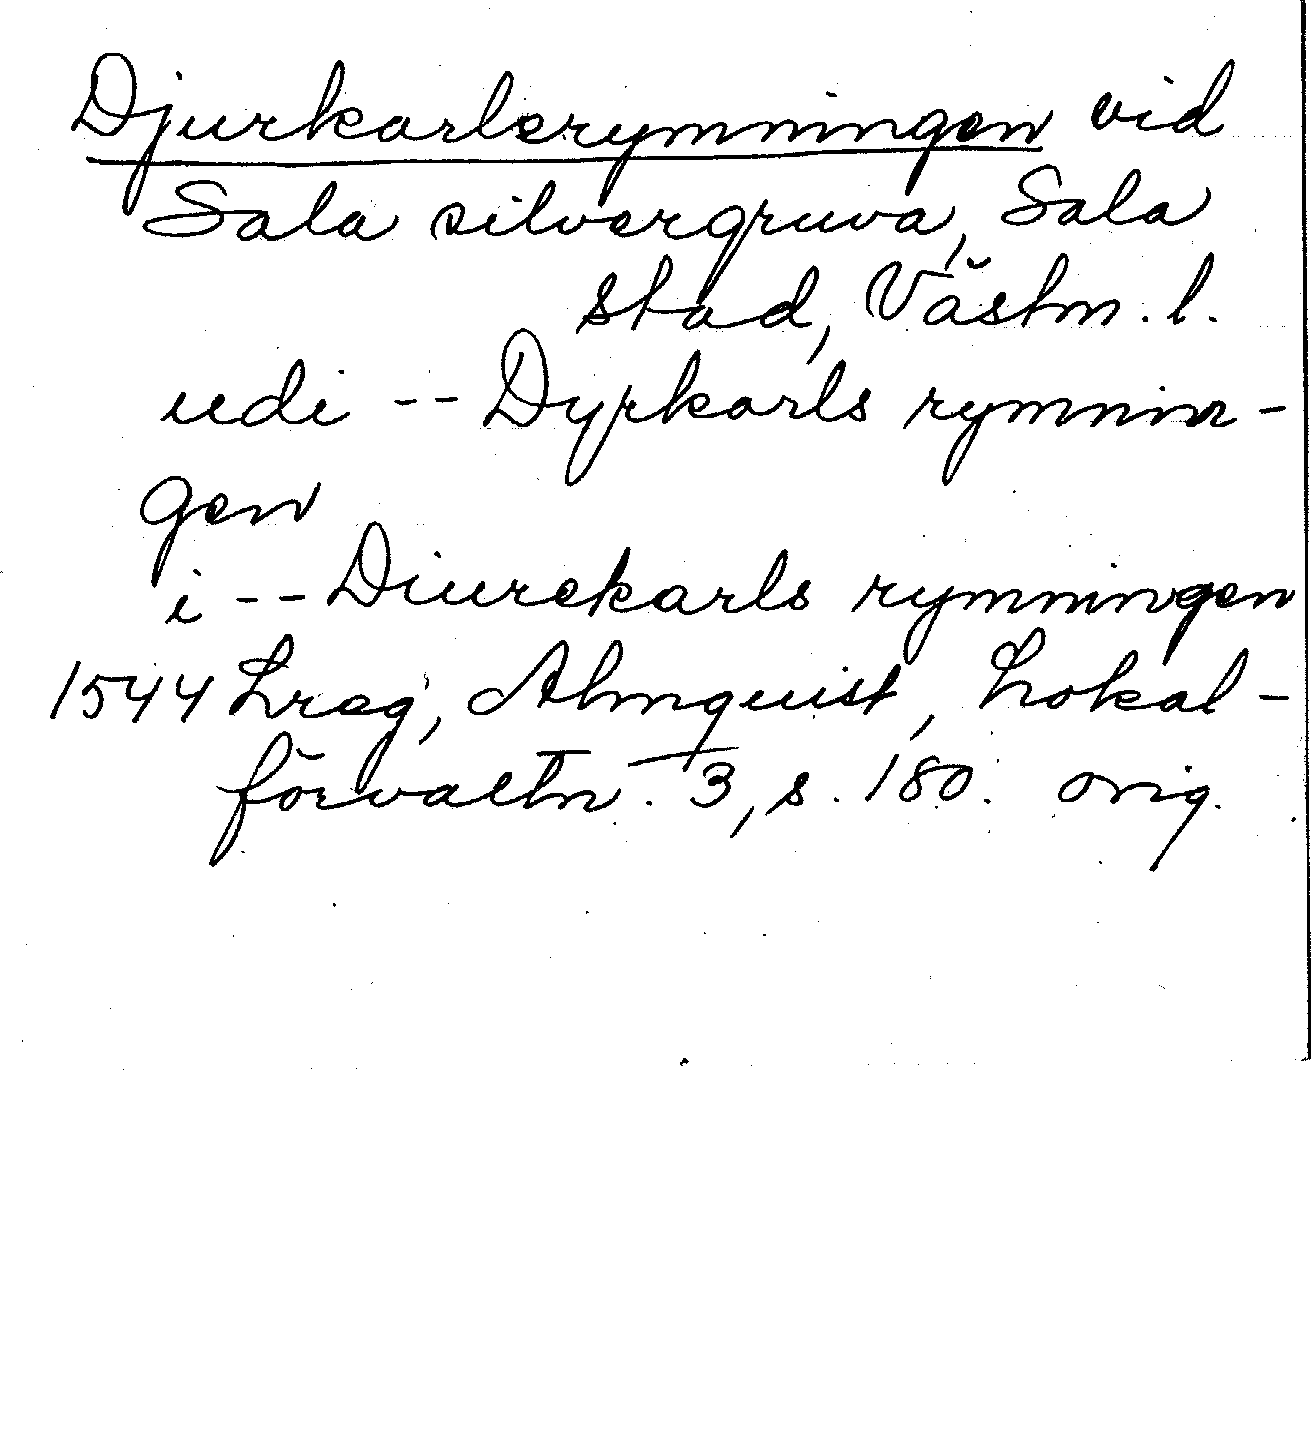 Djurkarlsrymningen vid
Sala silvergruva, Sala
stad, Västm. l.
udi -- Dyrkarls rymnin-
gen
i -- Diurekarls rymningen
1544 Lreg, Almquist, Lokal-
förvaltn. 3, s. 180. orig.